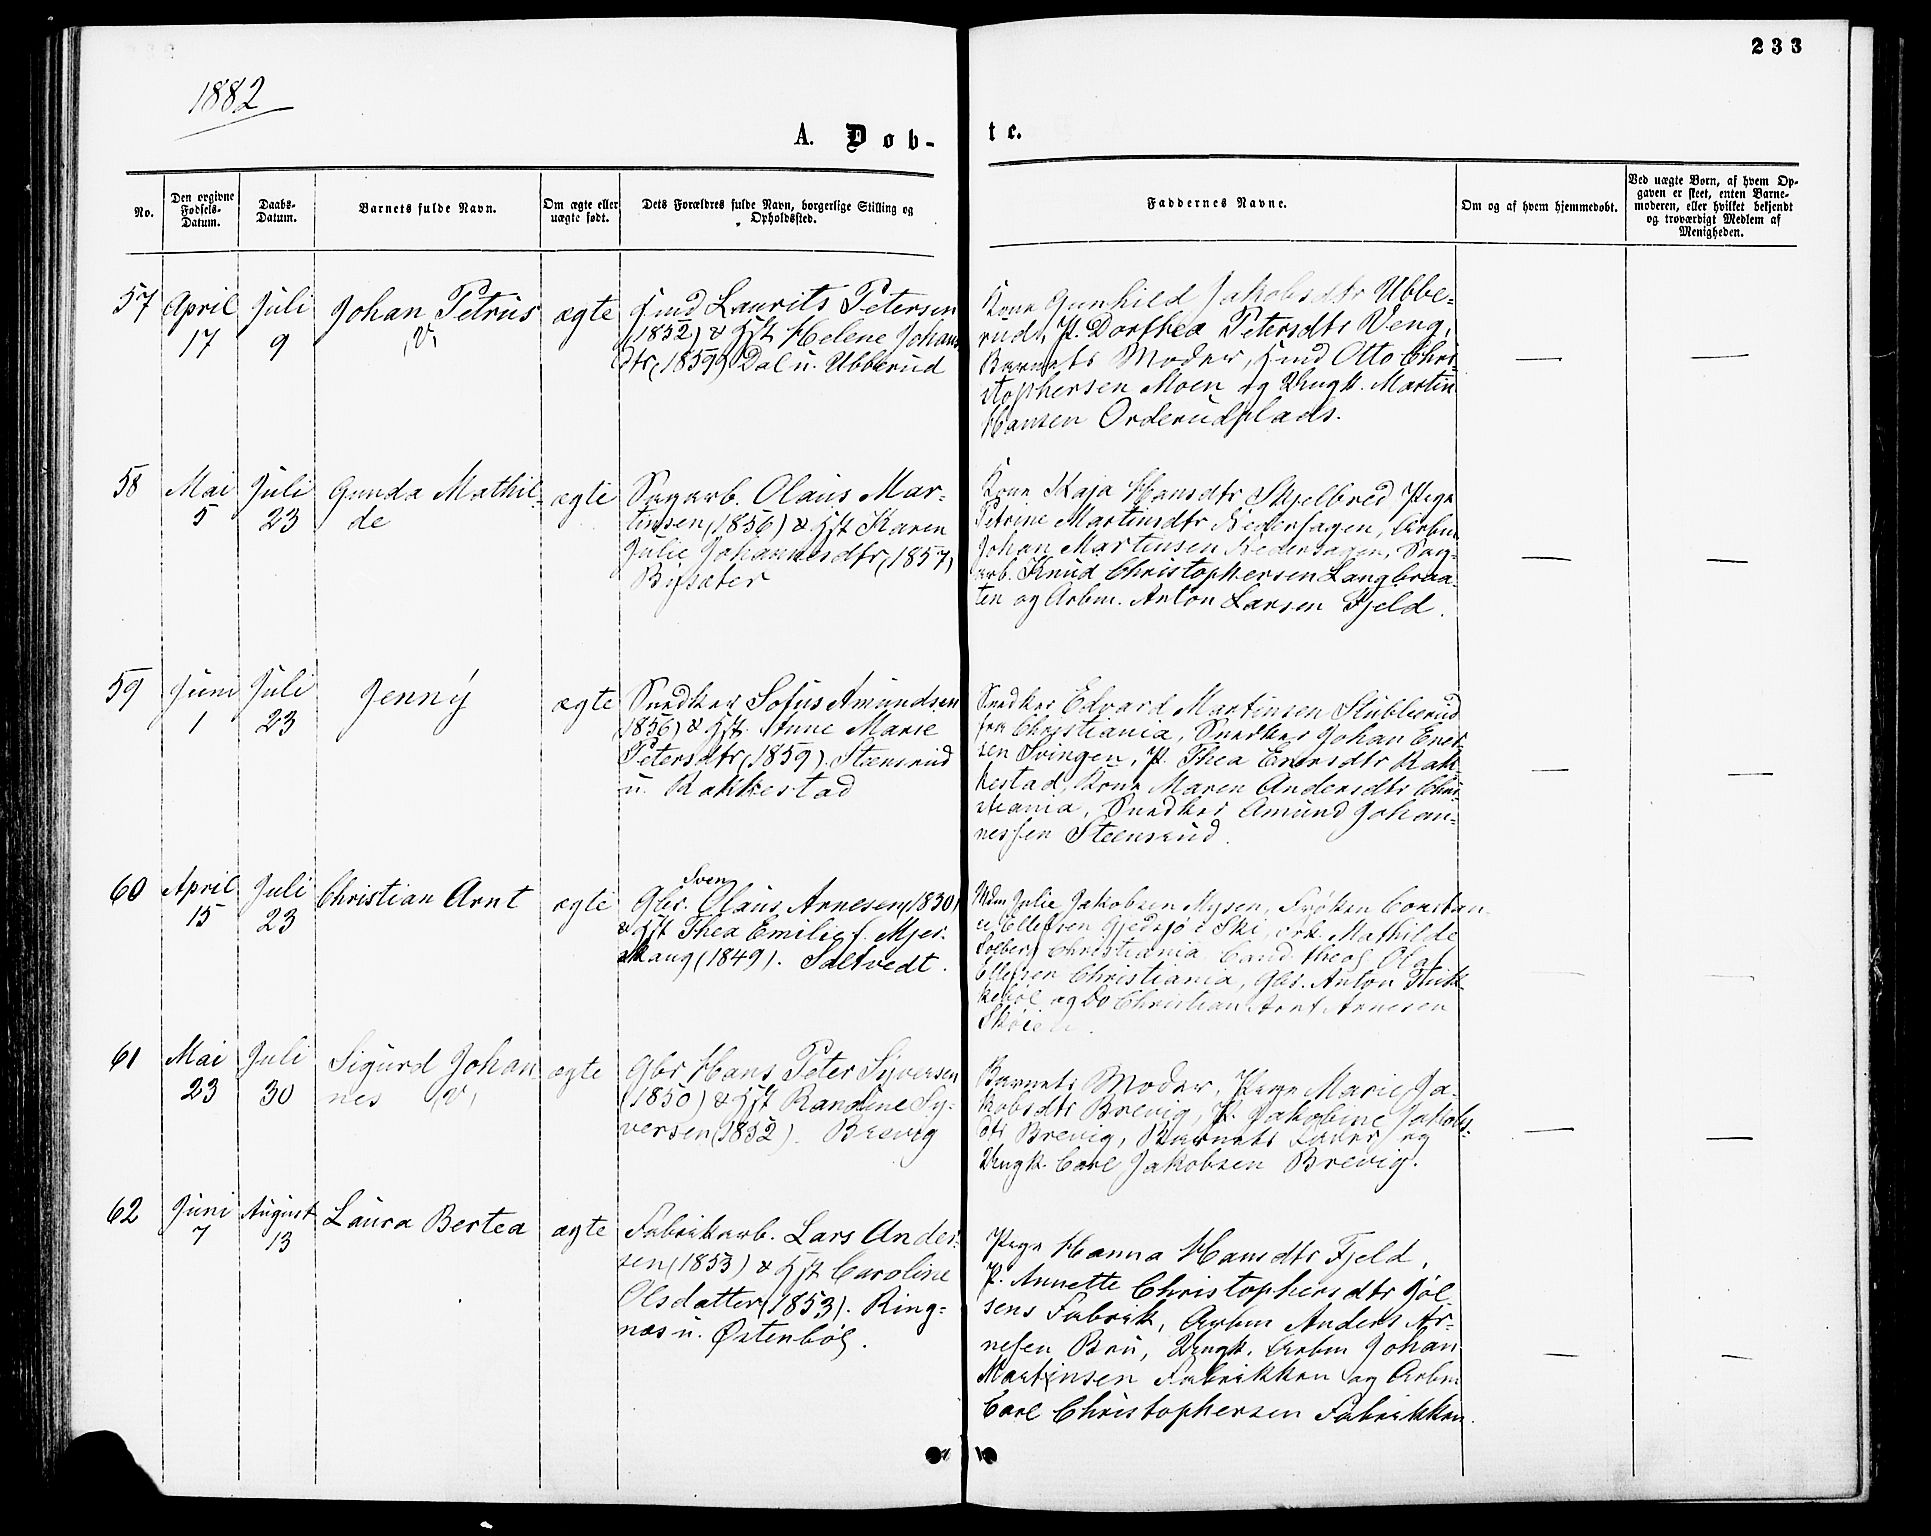 233
1882
A. Døb-
te.
No.
Den opgivne
Fødsels-
Datum.
Daabs-
Datum.
Barnets fulde Navn.
Om ægte eller
uægte født.
Dets Forældres fulde Navn, borgerlige Stilling og
Opholdssted.
Faddernes Navne.
Om og af hvem hjemmedøbt.
Ved uægte Børn, af hvem Op-
gaven er skeet, enten Barne-
moderen, eller hvilket bekjendt
og troværdigt Medlem af
Menigheden.
57
April
17
Juli
9
Johan Petrus
(v)
ægte
Laurits Petersen
(1852) & Hst Helene Johans
dtr (1859) Dal u. Ubberud
Kone Gunhild Jakobsdtr Ubbe-
rud, P. Dorthea Petersdtr Veng,
Barnets Moder, Otto Chri-
stophersen Moen og Ungk. Martin
Hansen Orderudplads.
58
Mai
5
Juli
23
Gunda Mathil-
de
ægte
Sagarb. Olaus Mar-
tinsen (1856) & Hst Karen
Julie Johannesdtr (1857)
Bysæter
Kone Kaja Hansdtr Skjelbred Pige
Petrine Martinsdtr Nedersagen, Arbm
Johan Martinsen Nedersagen, Sag-
arb. Knud Christophersen Langbraa-
ten og Arbm. Anton Larsen Fjeld.
59
Juni
1
Juli
23
Jenny
ægte
Snedker Sofus Amundsen
(1856) & Hst. Anne Marie
Petersdtr (1859). Steensrud
u. Rakkestad
Snedker Edvard Martinsen Stubberud
fra Christiania, Snedker Johan Ener-
sen Svingen, P. Thea Enersdtr Rak-
kestad, Kone Maren Andersdtr Chri-
stiania, Snedker Amund Johan-
nessen Steensrud.
60
April
15
Juli
23
Christian Arnt
ægte
Sven
Gbr. Olaus Arnesen (1830)
& Hst Thea Emilie f. Mjer-
skaug (1849). Saltvedt.
Mdm Julie Jakobsen Mysen, Frøken Constan-
ce Ellefsen Gjedsjø i Ski, Mathilde
Solberg Christiania Cand. theol Olaf
Ellefsen Christiania, Gbr. Anton Stik-
kebøl og Do Christian Arnt Arnesen
Skøien.
61
Mai
23
Juli
30
Sigurd Johan
nes (v)
ægte
Gbr Hans Peter Syversen
(1850) & Hst Randine Sy-
versen (1852). Brevig
Barnets Moder, Pige Marie Ja-
kobsdtr Brevig, P. Jakobine Jakobs-
dtr Brevig, Barnets Fader og
Ungk. Carl Jakobsen Brevig.
62
Juni
7
August
13
Laura Bertea
ægte
Fabrikarb. Lars Ander-
sen (1853) & Hst Caroline
Olsdatter (1853). Ring-
næs u. Østenbøl.
Pige Hanna Hansdtr Fjeld,
P. Annette Christophersdtr Jøl
sens Fabrik, Arbm Anders Ar-
nesen Bru, Ungk. Arbm Johan
Martinsen Fabrikken og Arbm
Carl Christophersen Fabrikken.